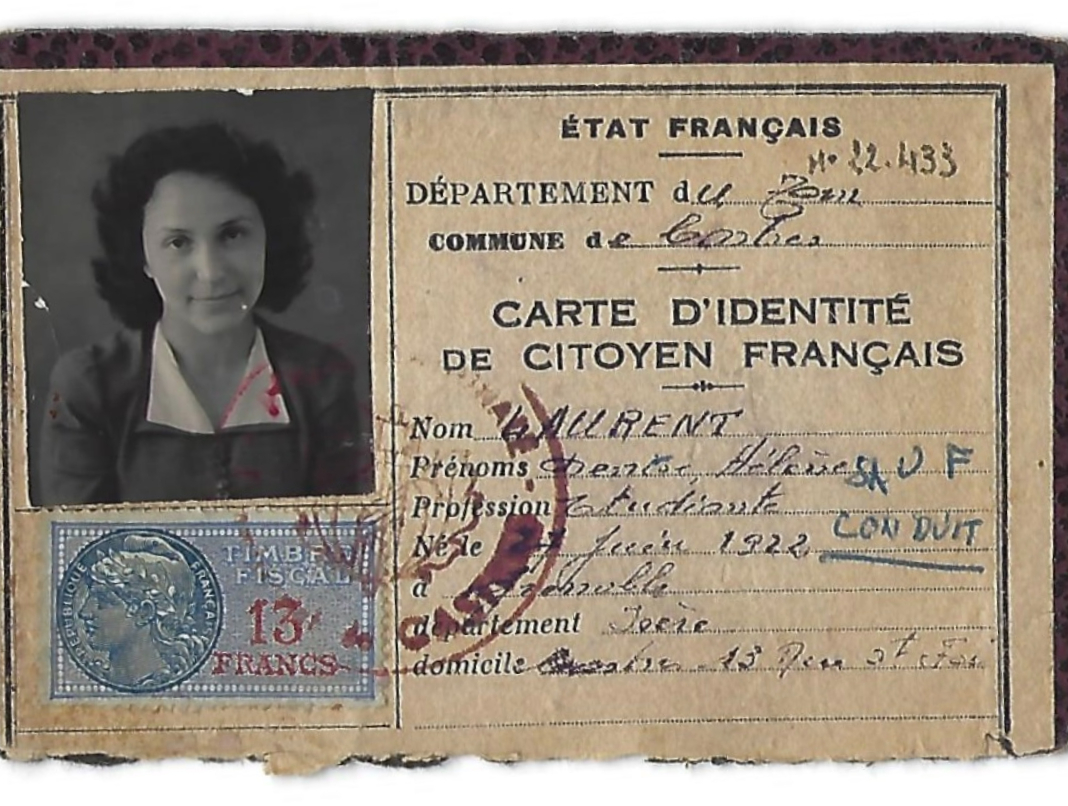 ÉTAT FRANÇAIS
N° 22.433
DÉPARTEMENT du Tarn
COMMUNE de Castres
CARTE D'IDENTITÉ
DE CITOYEN FRANÇAIS
Nom LAURENT
Prénoms Denise, Hélène
SAUF
Profession Etudiante
CONDUIT
Né le Juin 1922
à Grenoble
département Isère
domicile Castres 13 Rue St Foi
RÉPUBLIQUE FRANÇAISE
TIMBRE
FISCAL
13F
FRANCS